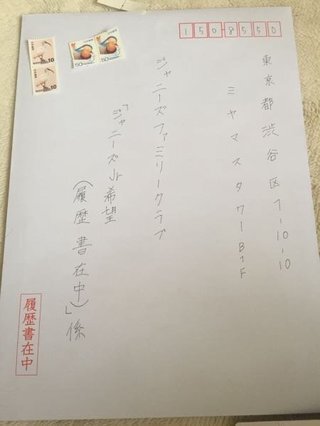 150-8550
東京都渋谷区1-10-10
ミヤマスタワーB1F
ジャニーズファミリークラブ
「ジャニーズJr希望
(履歴書在中)」係
履歴書在中
10
10
50
50